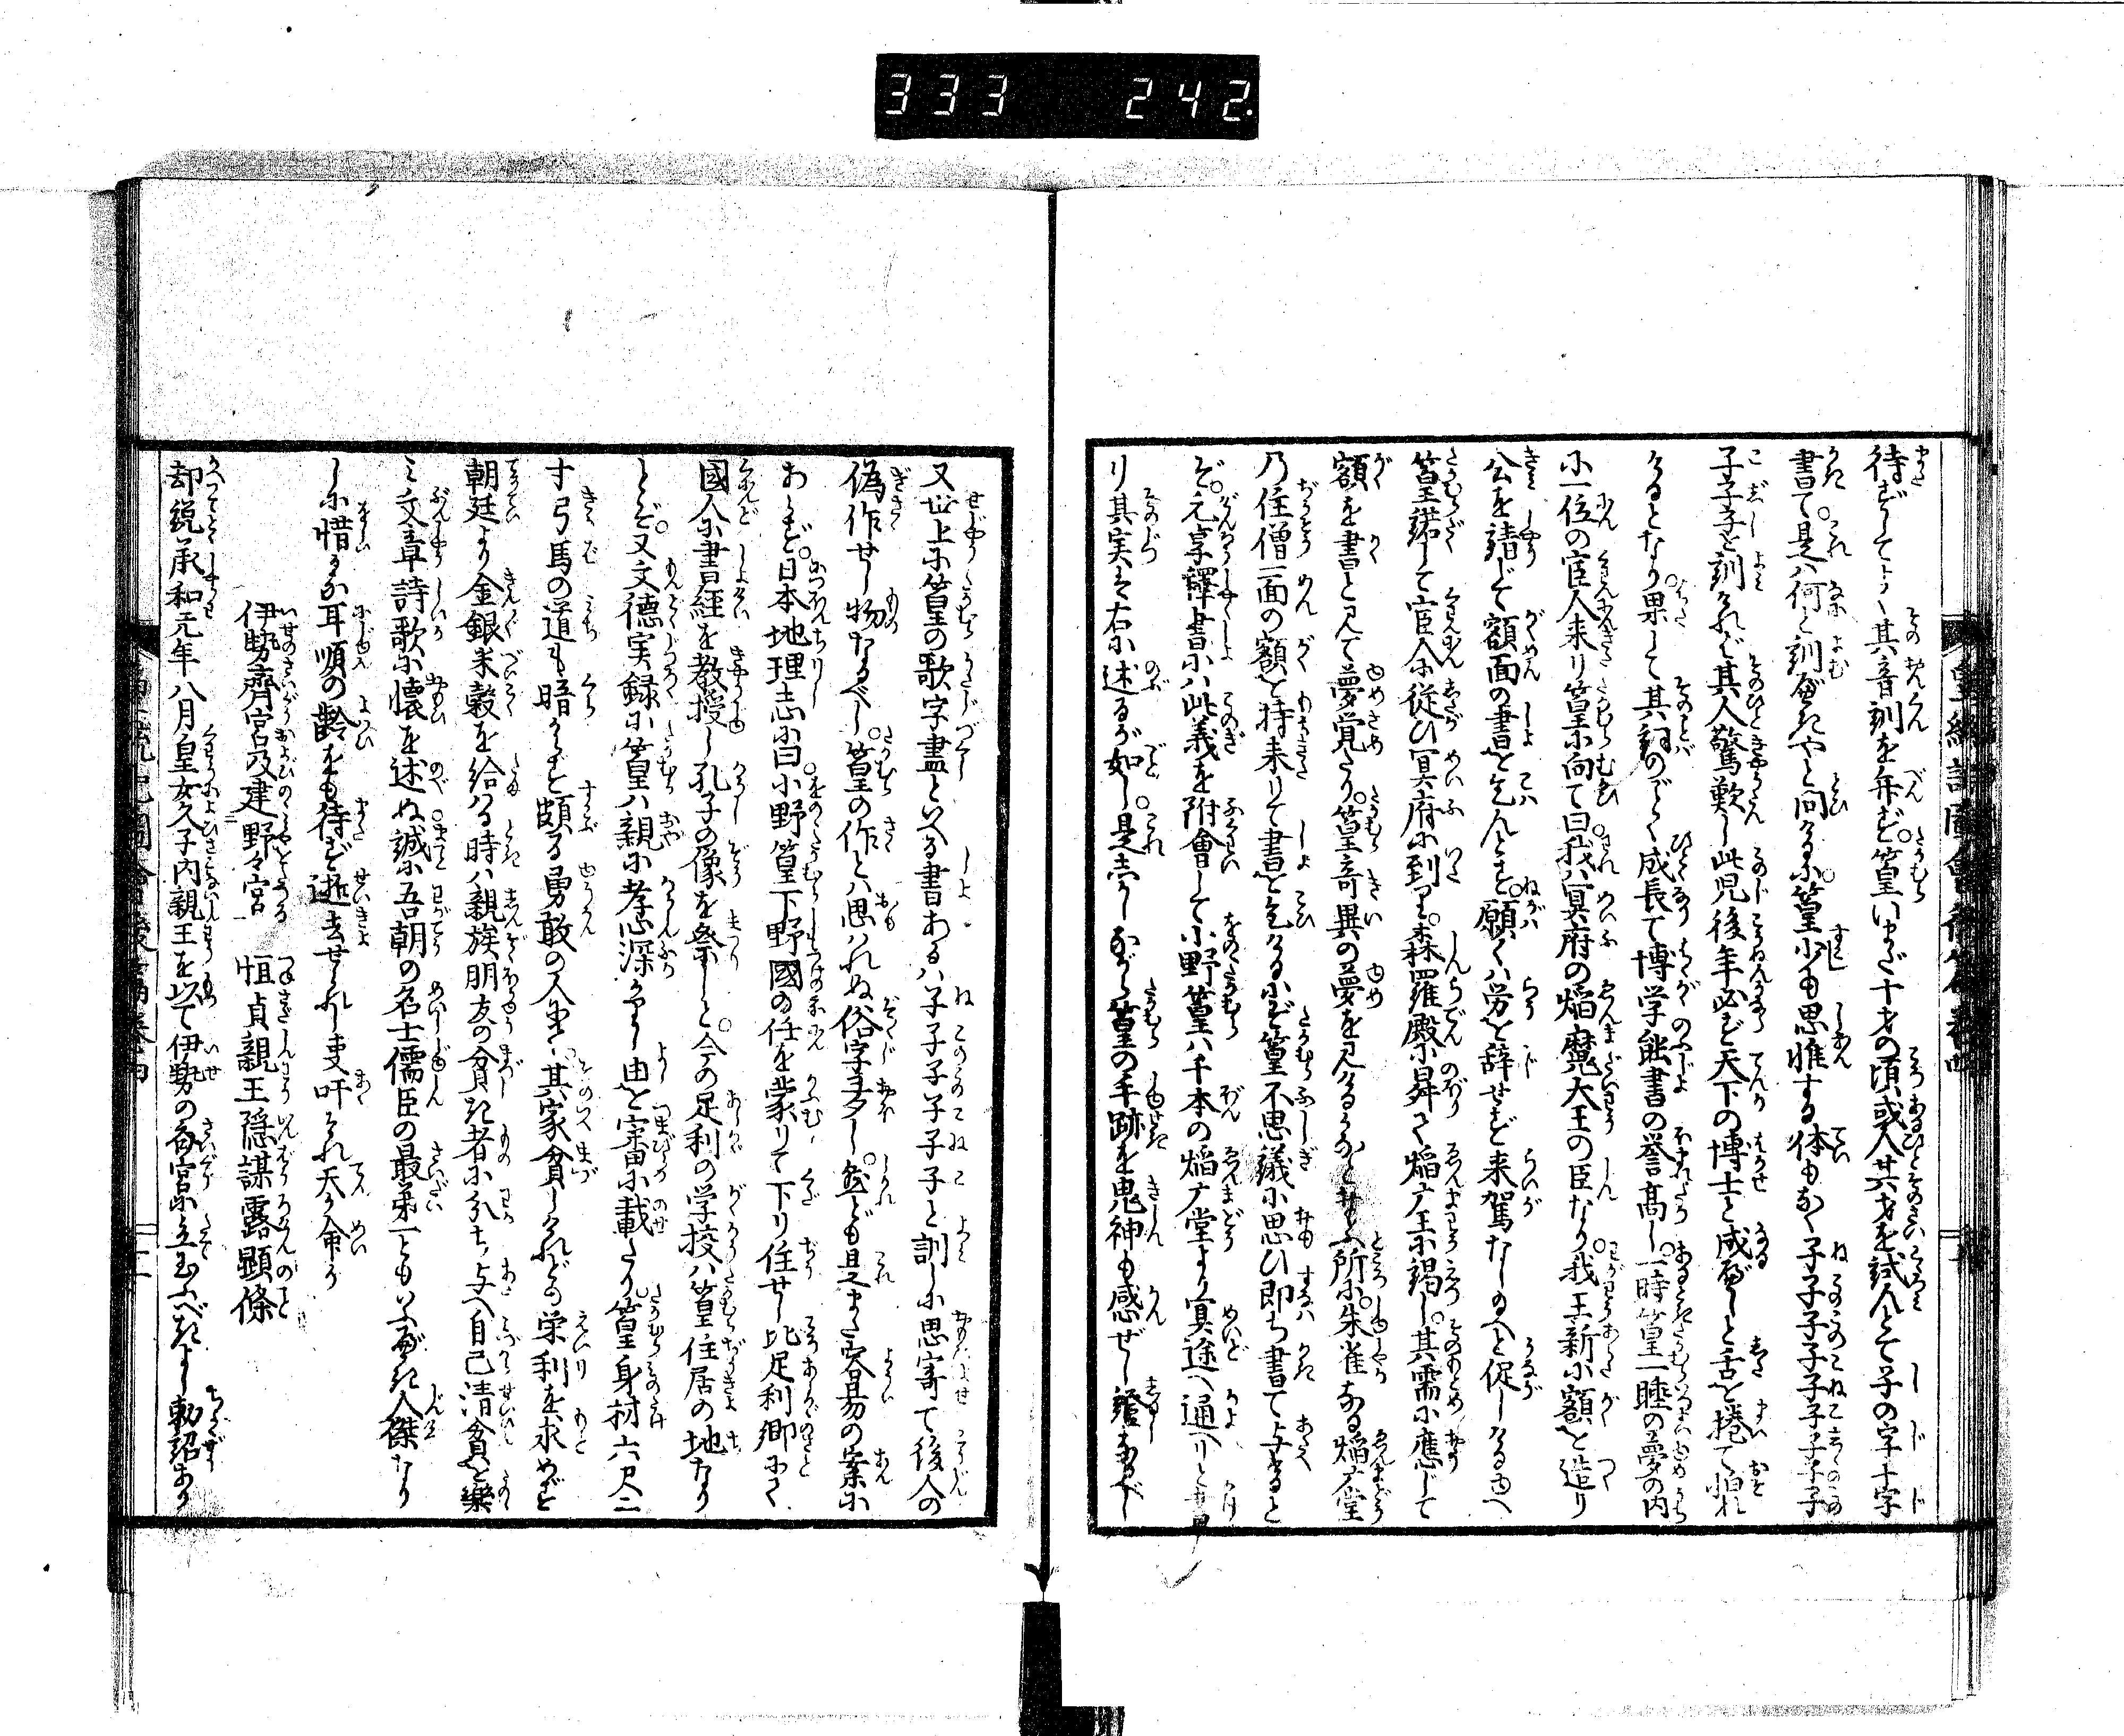 333 242.
待ずしてよく其音訓を弁ず。篁いまだ十才の頃或人其才を試んとて子の字十字
書て。是ハ何と訓べきやと問けるに。篁少しも思惟する体もなく子子子子子子子子子
子子子と訓けれバ其人驚歎し此児後年必ず天下の博士と成べしと舌を捲て怕れ
けるとなり。果して其詞のごとく成長て博学能書の誉高し。一時篁一睡の夢の内
に一位の宦人来り篁に向て曰。我ハ冥府の焔魔大王の臣なり。我王新に額を造り
公を請じて額面の書を乞んとす。願くハ労を辞せず来駕なし給へと促しける由へ
篁諾して宦人に従ひ冥府に到り。森羅殿に昇て焔广王に謁し。其需に應じて
額を書と見て夢覚たり。篁奇異の夢を見けるかなと思ふ所に。朱雀なる焔广堂
乃住僧一面の額を持来りて書を乞けるにぞ篁不思議に思ひ即ち書て与けると
ぞ。元亨釋書にハ此義を附會して小野篁ハ千本の焔广堂より冥途へ通へりと書り
り其実ハ右に述るが如し。是しかしながら篁の手跡を鬼神も感ぜし證なるべし
又世上に篁の歌字盡といへる書あるハ子子子子子子と訓しに思寄て後人の
偽作せし物なるべし。篁の作とハ思ハれぬ俗字多し。然ども是また容易の案に
あらず。日本地理志に曰。小野篁下野國の任を蒙りて下り任せし比足利郷にて
國人に書経を教授し孔子の像を祭しと。今の足利の学校ハ篁住居の地なり
とぞ。又文徳実録に篁ハ親に孝心深かりし由を審に載たり。篁身材六尺二
寸弓馬の道も暗からず頗る勇敢の人にて。其家貧しけれども栄利を求めず
朝廷より金銀米穀を給ハる時ハ親族朋友の貧き者に分ち与へ自己清貧を樂
ミ文章詩歌に懐を述ぬ。誠に吾朝の名士儒臣の最第一ともいふべき人傑なり
しに惜かな耳順の齢をも待ず逝去せられし事吁それ天か命か
伊勢齊宮及建野々宮 恒貞親王隠謀露顕條
却説承和元年八月皇女久子内親王を以て伊勢の斎宮に立玉ふべきよし勅詔あり